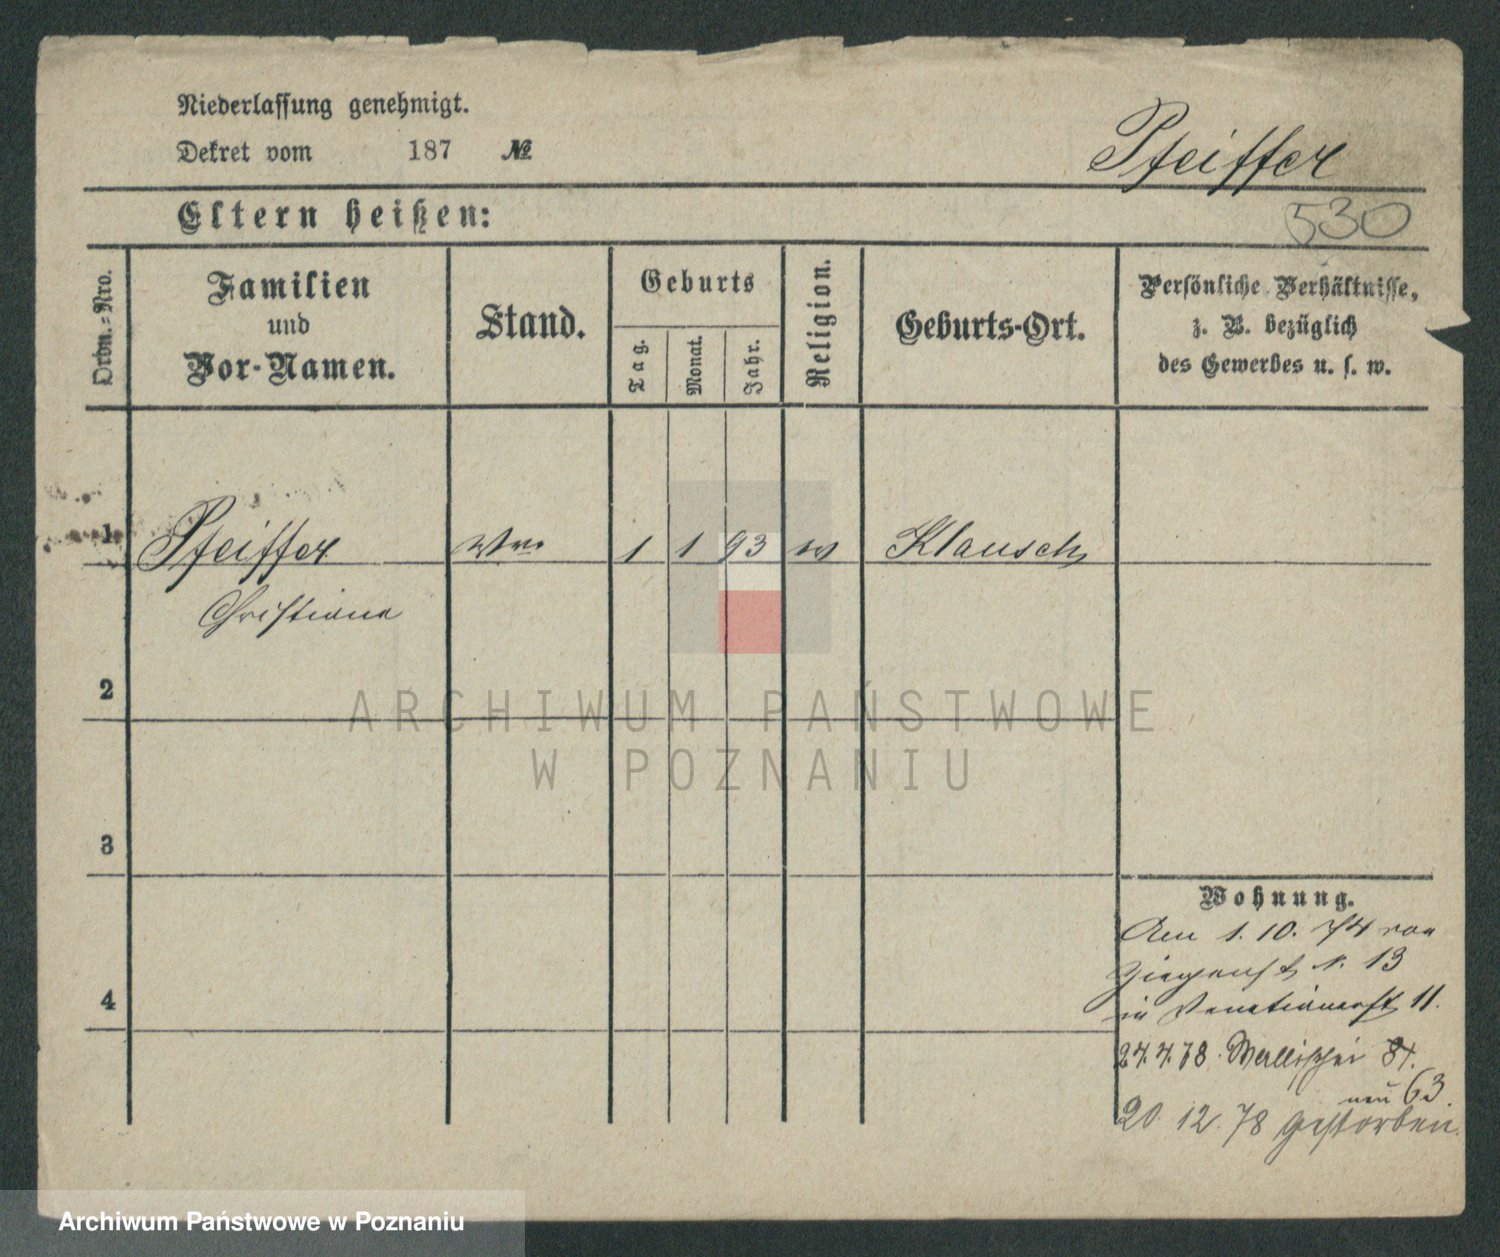 Niederlassung genehmigt.
Dekret vom 187 №
Pfeiffer
Eltern heißen:
530
Ordn.-Nro.
Familien
und
Vor-Namen.
Stand.
Geburts
Tag.
Monat.
Jahr.
Religion.
Geburts-Ort.
Persönliche Verhältnisse,
z. B. bezüglich
des Gewerbes u. s. w.
1 Pfeiffer Wwe 1 1 93 Klausch
Christiane
2
ARCHIWUM PAŃSTWOWE
W POZNANIU
3
Wohnung.
Am 1. 10. 74 von
Ziegenst N. 13
4
in Venetianerst 11.
24.4.78. Wallischei 81.
neu 63.
20. 12. 78 gestorben.
Archiwum Państwowe w Poznaniu